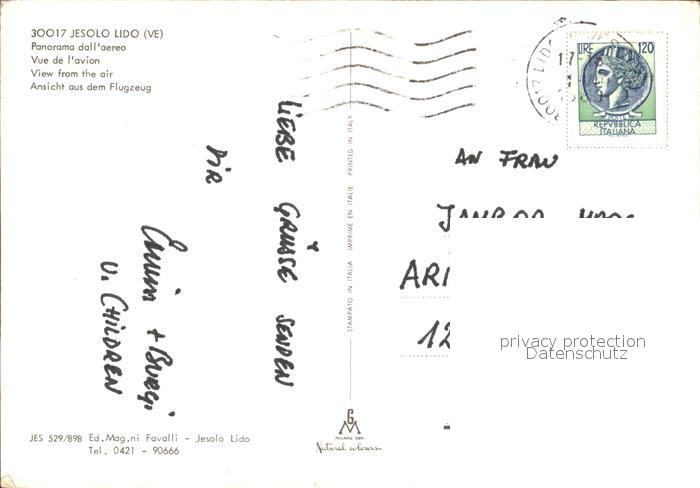 30017 JESOLO LIDO (VE)
Panorama dall'aereo
Vue de l'avion
View from the air
Ansicht aus dem Flugzeug
LIEBE GRÜSSE SENDEN
DIR
+ BURGI
U. CHILDREN
JES 529/898 Ed. Mag.ni Favalli - Jesolo Lido
Tel. 0421 - 90666
STAMPATO IN ITALIA IMPRIMÉ EN ITALIE PRINTED IN ITALY
GM
MILANO DEP.
Natural colours
30017 LIDO
17
LIRE 120
POSTE
REPVBBLICA
ITALIANA
AN FRAU
ARI
12
privacy protection
Datenschutz